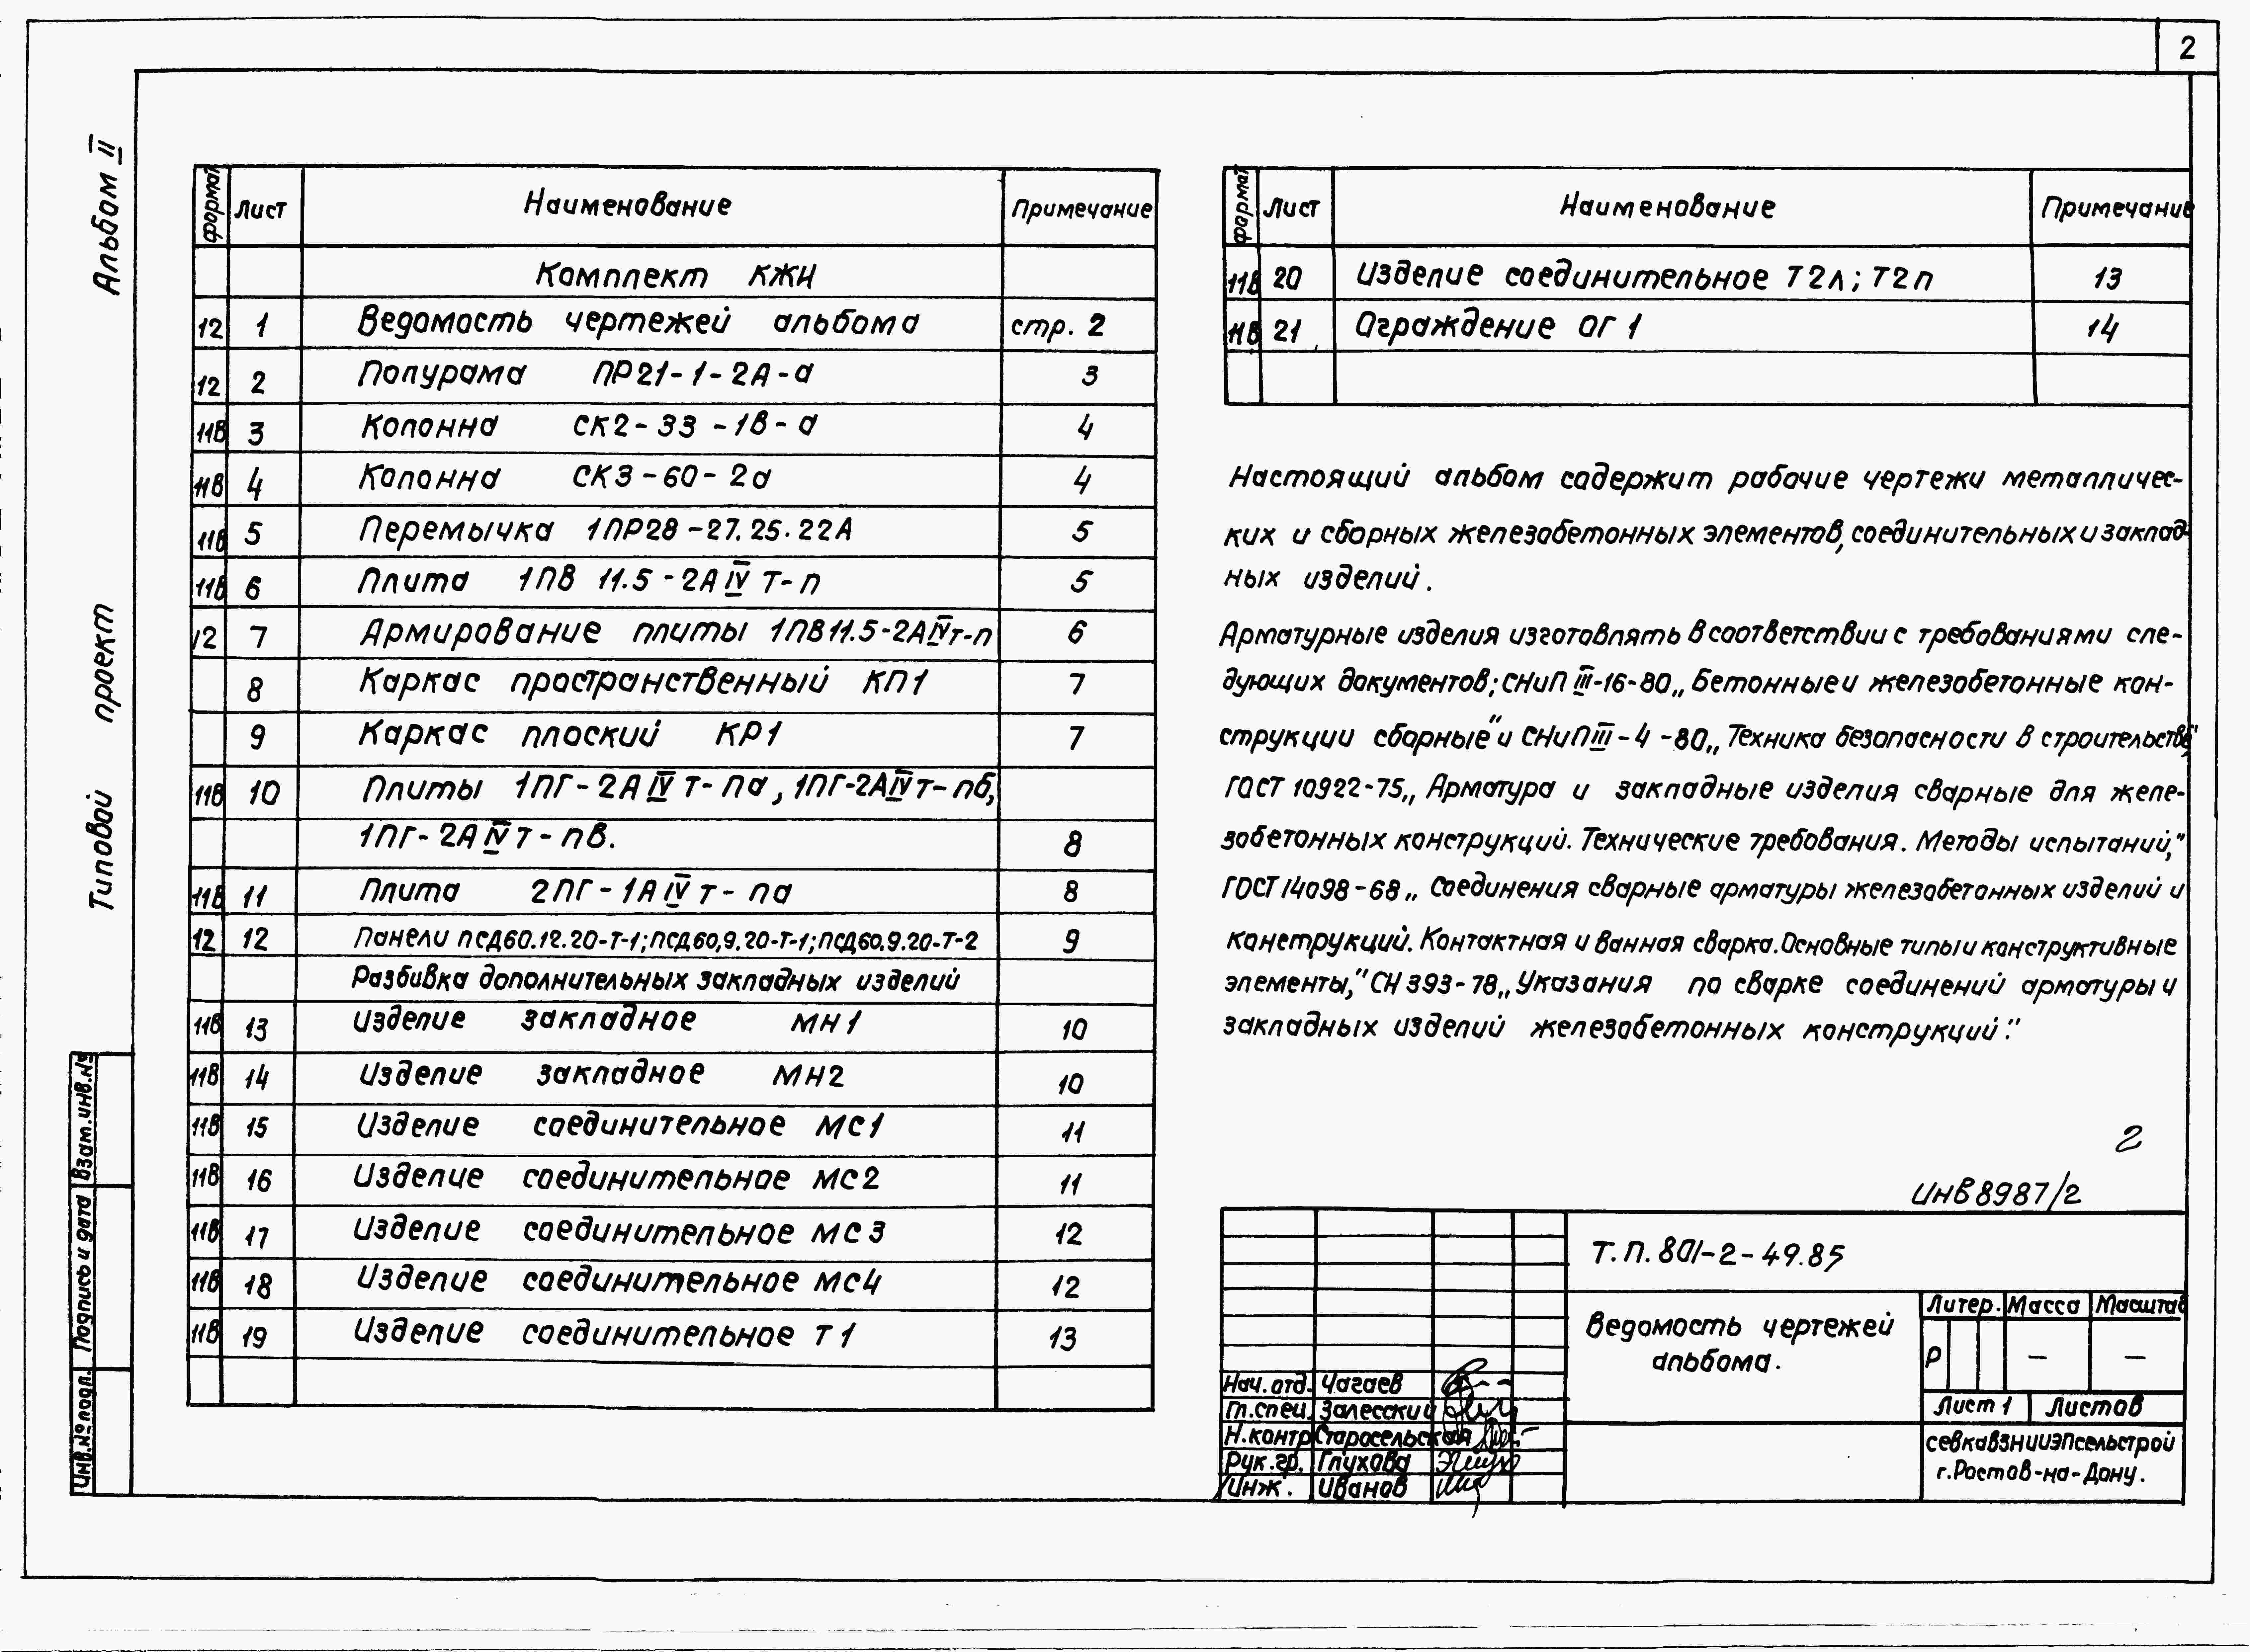 2
Альбом II
Типовой проект
Взам. инв. №
Подпись и дата
Инв. № подл.
формат Лист Наименование Примечание
Комплект КЖИ
12 1 Ведомость чертежей альбома стр. 2
12 2 Полурама ПР21-1-2А-а 3
11В 3 Колонна СК2-33-1В-а 4
11В 4 Колонна СК3-60-2а 4
11В 5 Перемычка 1ПР28-27.25.22А 5
11В 6 Плита 1ПВ 11.5-2А IV Т-п 5
12 7 Армирование плиты 1ПВ11.5-2АIVт-п 6
8 Каркас пространственный КП1 7
9 Каркас плоский КР1 7
11В 10 Плиты 1ПГ-2А IV т-па, 1ПГ-2АIVт-пб,
1ПГ-2А IV т-пв. 8
11В 11 Плита 2ПГ-1А IV т-па 8
12 12 Панели ПСД60.12.20-Т-1; ПСД60,9.20-Т-1; ПСД60.9.20-Т-2 9
Разбивка дополнительных закладных изделий
11В 13 Изделие закладное МН1 10
11В 14 Изделие закладное МН2 10
11В 15 Изделие соединительное МС1 11
11В 16 Изделие соединительное МС2 11
11В 17 Изделие соединительное МС3 12
11В 18 Изделие соединительное МС4 12
11В 19 Изделие соединительное Т1 13
формат Лист Наименование Примечание
11В 20 Изделие соединительное Т2л; Т2п 13
11В 21 Ограждение ОГ1 14
Настоящий альбом содержит рабочие чертежи металличес-
ких и сборных железобетонных элементов, соединительных и заклад-
ных изделий.
Арматурные изделия изготовлять в соответствии с требованиями сле-
дующих документов; СНиП III-16-80 „Бетонные и железобетонные кон-
струкции сборные" и СНиП III-4-80 „Техника безопасности в строительстве",
ГОСТ 10922-75 „Арматура и закладные изделия сварные для желе-
зобетонных конструкций. Технические требования. Методы испытаний,"
ГОСТ 14098-68 „Соединения сварные арматуры железобетонных изделий и
конструкций. Контактная и ванная сварка. Основные типы и конструктивные
элементы," СН 393-78 „Указания по сварке соединений арматуры и
закладных изделий железобетонных конструкций."
2
Инв 8987/2
Т.П. 801-2-49.85
Ведомость чертежей
альбома.
Литер. Масса Масштаб
Р — —
Лист 1 Листов
СевкавзНИИЭПсельстрой
г. Ростов-на-Дону.
Нач. отд. Чагаев
Гл. спец. Залесский
Н. контр Старосельская
Рук. гр. Глухова
Инж. Иванов